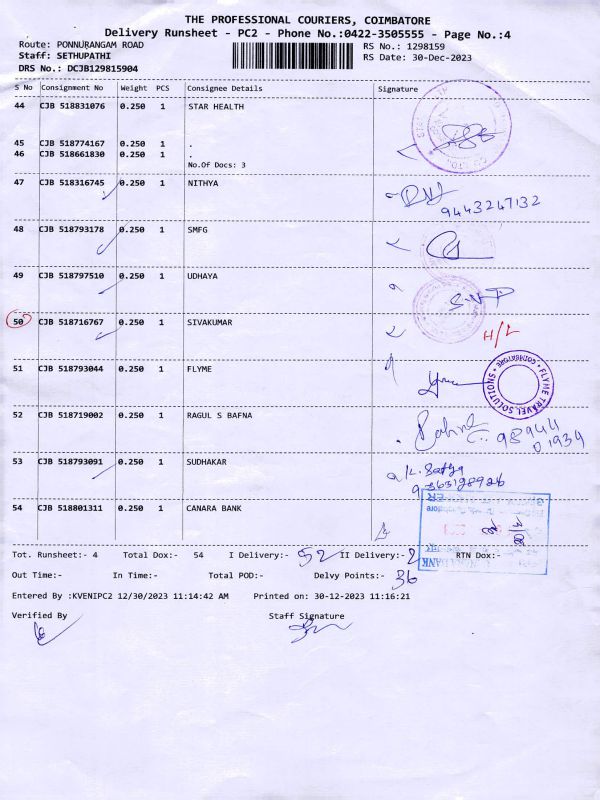 THE PROFESSIONAL COURIERS, COIMBATORE
Delivery Runsheet - PC2 - Phone No.:0422-3505555 - Page No.:4
Route: PONNURANGAM ROAD
RS No.: 1298159
Staff: SETHUPATHI
RS Date: 30-Dec-2023
DRS No.: DCJB129815904
S No Consignment No Weight PCS Consignee Details Signature
44 CJB 518831076 0.250 1 STAR HEALTH
45 CJB 518774167 0.250 1 .
46 CJB 518661830 0.250 1 .
No.Of Docs: 3
47 CJB 518316745 0.250 1 NITHYA
9443247132
48 CJB 518793178 0.250 1 SMFG
49 CJB 518797510 0.250 1 UDHAYA
S.N.P
50 CJB 518716767 0.250 1 SIVAKUMAR
H/L
51 CJB 518793044 0.250 1 FLYME
FLYME TRAVEL SOLUTIONS
COIMBATORE
52 CJB 518719002 0.250 1 RAGUL S BAFNA
98944
01934
53 CJB 518793091 0.250 1 SUDHAKAR
K. Sathya
54 CJB 518801311 0.250 1 CANARA BANK
Tot. Runsheet:- 4 Total Dox:- 54 I Delivery:- 52 II Delivery:- 2 RTN Dox:-
Out Time:- In Time:- Total POD:- Delvy Points:- 36
Entered By :KVENIPC2 12/30/2023 11:14:42 AM Printed on: 30-12-2023 11:16:21
Verified By Staff Signature